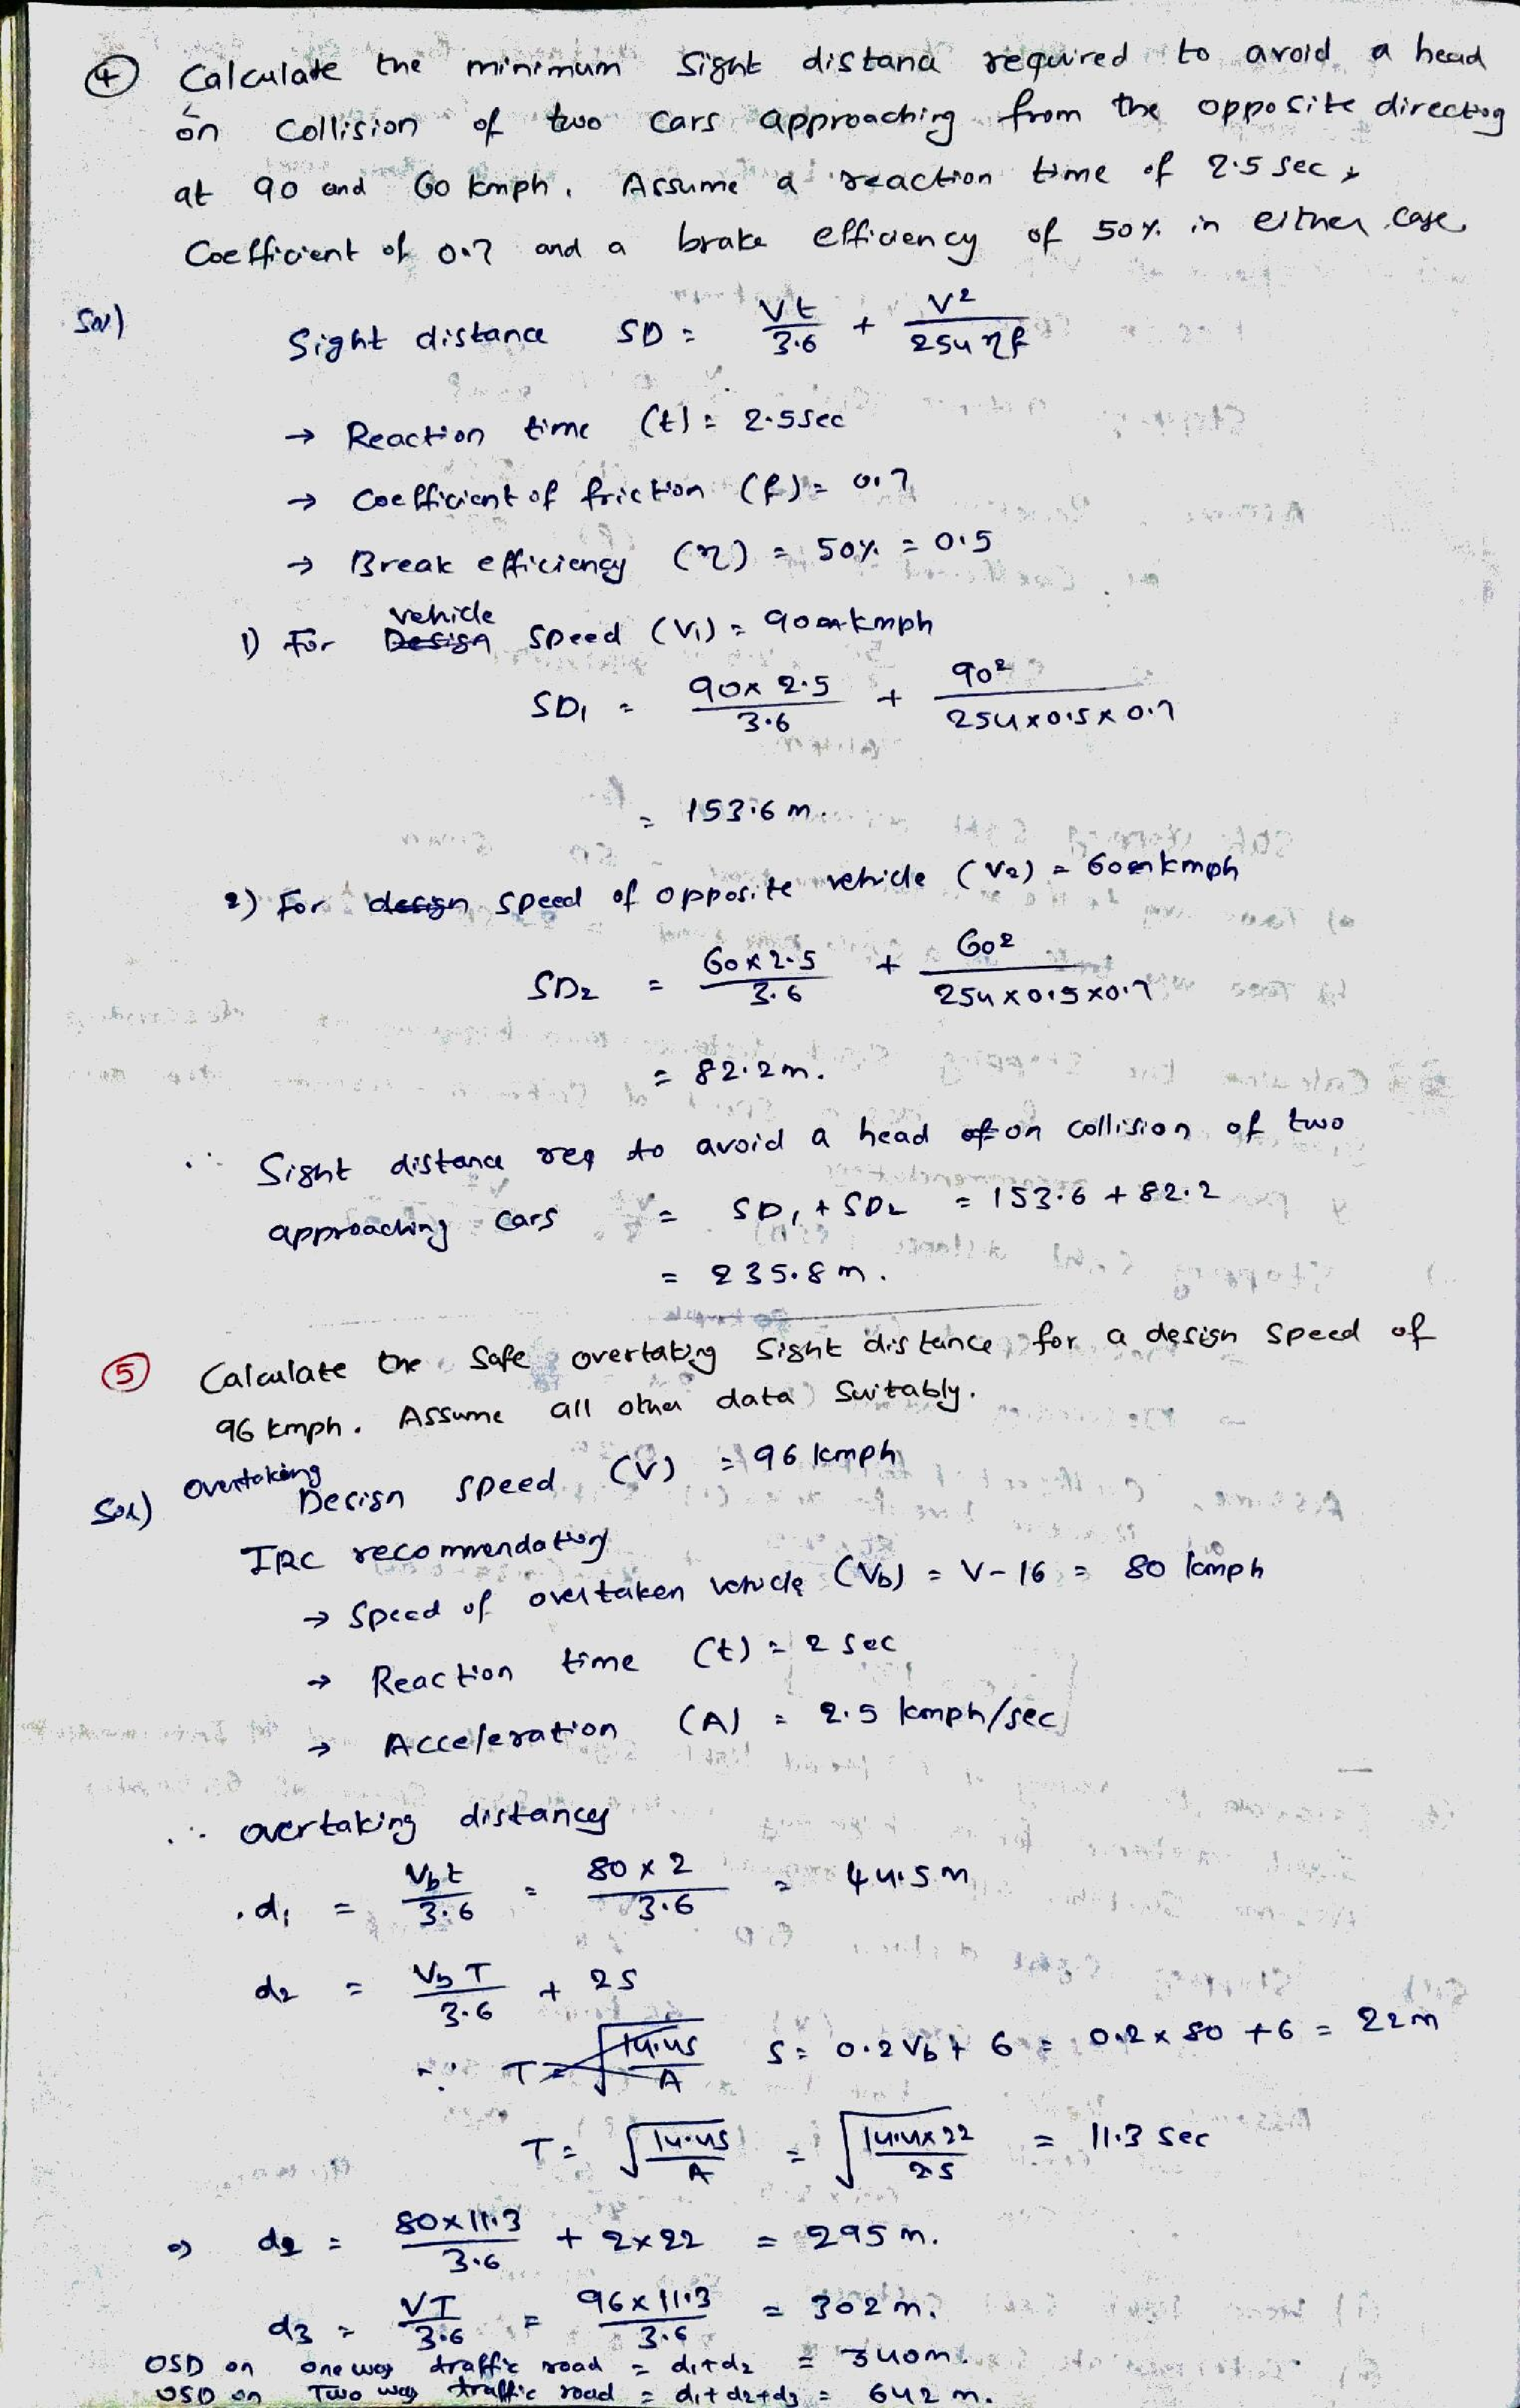 ④ Calculate the minimum Sight distance required to avoid a head
on Collision of two Cars approaching from the opposite direction
at 90 and 60 kmph. Assume a reaction time of 2.5 sec,
Coefficient of 0.7 and a brake efficiency of 50% in either case
Sol)
Sight distance SD = Vt/3.6 + V²/254ηf
→ Reaction time (t) = 2.5 sec
→ Coefficient of friction (f) = 0.7
→ Break efficiency (η) = 50% = 0.5
1) For Design vehicle speed (V1) = 90 kmph
SD1 = 90x2.5/3.6 + 90²/254x0.5x0.7
= 153.6 m.
2) For design speed of opposite vehicle (V2) = 60 kmph
SD2 = 60x2.5/3.6 + 60²/254x0.5x0.7
= 82.2 m.
∴ Sight distance req to avoid a head of on collision of two
approaching cars = SD1 + SD2 = 153.6 + 82.2
= 235.8 m.
⑤ Calculate the Safe overtaking Sight distance for a design speed of
96 kmph. Assume all other data Suitably.
Sol) Overtaking Design speed (V) = 96 kmph
IRC recommendation
→ Speed of overtaken vehicle (Vb) = V-16 = 80 kmph
→ Reaction time (t) = 2 sec
→ Acceleration (A) = 2.5 kmph/sec
∴ overtaking distances
d1 = Vbt/3.6 = 80x2/3.6 = 44.5 m
d2 = VbT/3.6 + 2S
∴ T = √14.4S/A S = 0.2Vb + 6 = 0.2x80 + 6 = 22m
T = √14.4S/A = √14.4x22/2.5 = 11.3 sec
⇒ d2 = 80x11.3/3.6 + 2x22 = 295 m.
d3 = VT/3.6 = 96x11.3/3.6 = 302 m.
OSD on one way traffic road = d1+d2 = 340m.
OSD on Two way traffic road = d1+d2+d3 = 642 m.